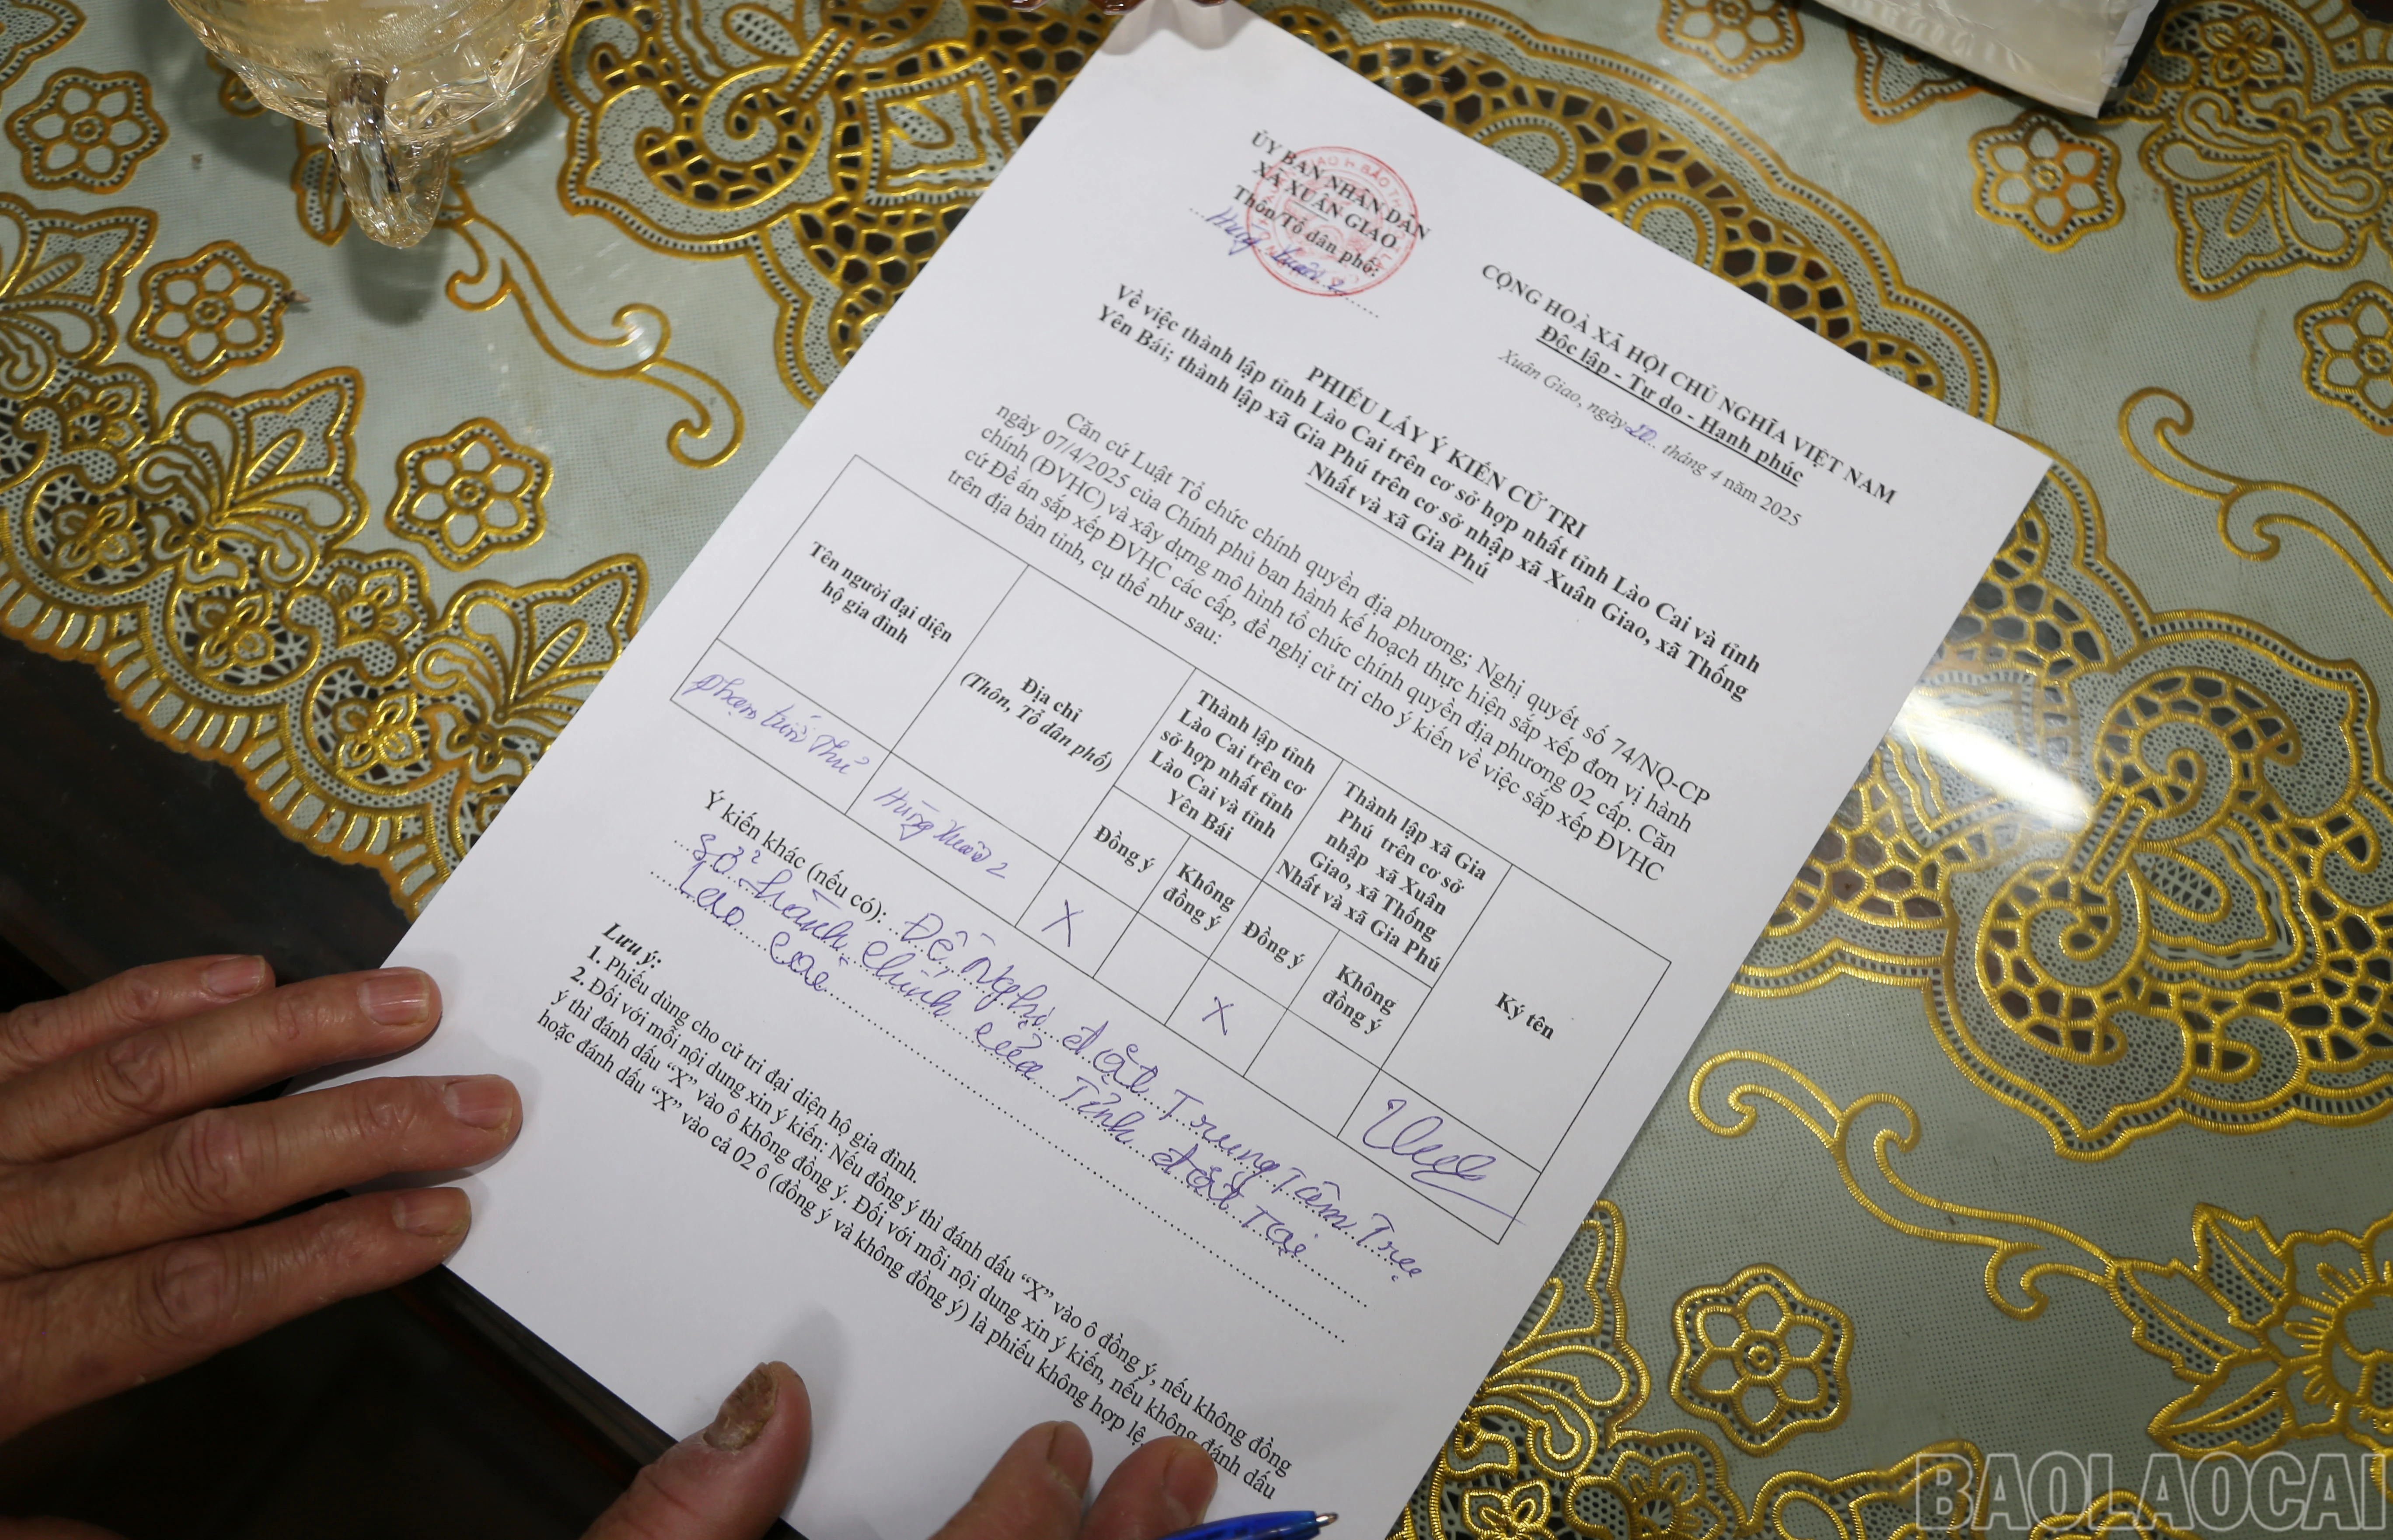 ỦY BAN NHÂN DÂN
XÃ XUÂN GIAO
Thôn/Tổ dân phố:
Hùng Xuân 2
CỘNG HOÀ XÃ HỘI CHỦ NGHĨA VIỆT NAM
Độc lập - Tự do - Hạnh phúc
Xuân Giao, ngày 20 tháng 4 năm 2025
PHIẾU LẤY Ý KIẾN CỬ TRI
Về việc thành lập tỉnh Lào Cai trên cơ sở hợp nhất tỉnh Lào Cai và tỉnh
Yên Bái; thành lập xã Gia Phú trên cơ sở nhập xã Xuân Giao, xã Thống
Nhất và xã Gia Phú
Căn cứ Luật Tổ chức chính quyền địa phương; Nghị quyết số 74/NQ-CP
ngày 07/4/2025 của Chính phủ ban hành kế hoạch thực hiện sắp xếp đơn vị hành
chính (ĐVHC) và xây dựng mô hình tổ chức chính quyền địa phương 02 cấp. Căn
cứ Đề án sắp xếp ĐVHC các cấp, đề nghị cử tri cho ý kiến về việc sắp xếp ĐVHC
trên địa bàn tỉnh, cụ thể như sau:
Tên người đại diện
hộ gia đình
Địa chỉ
(Thôn, Tổ dân phố)
Thành lập tỉnh
Lào Cai trên cơ
sở hợp nhất tỉnh
Lào Cai và tỉnh
Yên Bái
Thành lập xã Gia
Phú trên cơ sở
nhập xã Xuân
Giao, xã Thống
Nhất và xã Gia Phú
Ký tên
Đồng ý
Không
đồng ý
Đồng ý
Không
đồng ý
Phạm tiến Thư
Hùng Xuân 2
X
X
Ý kiến khác (nếu có): Đề Nghị đặt Trung Tâm Trụ
Sở hành chính của Tỉnh đặt Tại
Lao cai
Lưu ý:
1. Phiếu dùng cho cử tri đại diện hộ gia đình.
2. Đối với mỗi nội dung xin ý kiến: Nếu đồng ý thì đánh dấu “X” vào ô đồng ý, nếu không đồng
ý thì đánh dấu “X” vào ô không đồng ý. Đối với mỗi nội dung xin ý kiến, nếu không đánh dấu
hoặc đánh dấu “X” vào cả 02 ô (đồng ý và không đồng ý) là phiếu không hợp lệ.
BAOLAOCAI